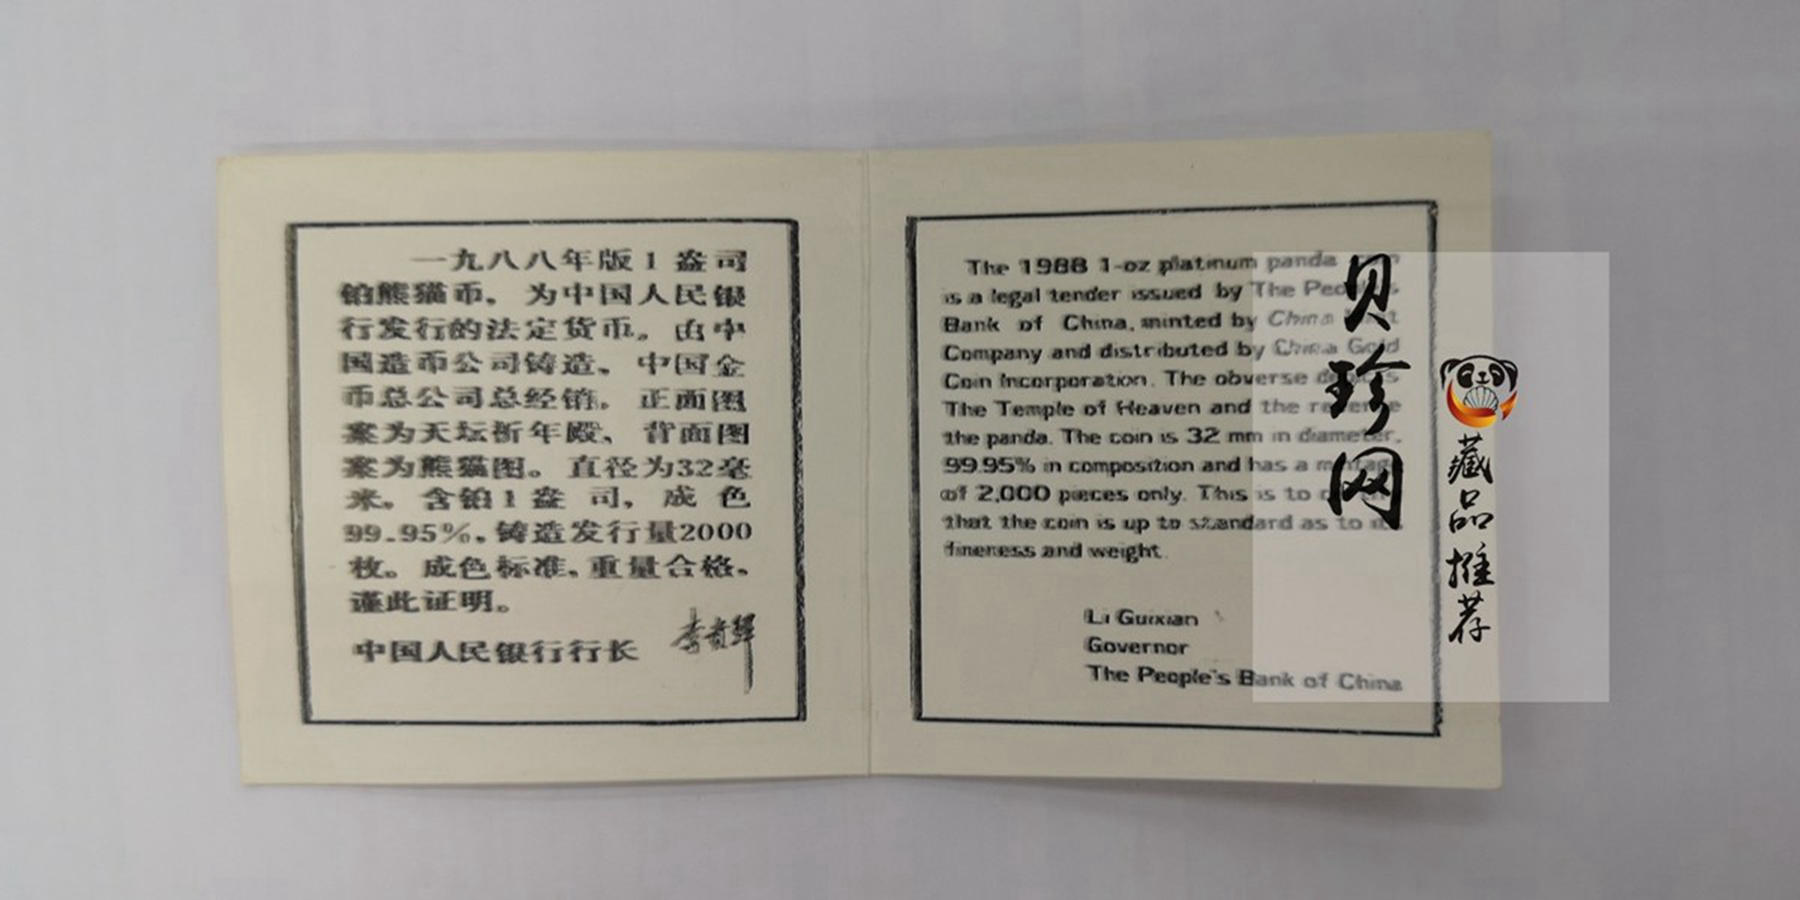 一九八八年版1盎司
铂熊猫币，为中国人民银
行发行的法定货币。由中
国造币公司铸造，中国金
币总公司总经销。正面图
案为天坛祈年殿，背面图
案为熊猫图。直径为32毫
米，含铂1盎司，成色
99.95%，铸造发行量2000
枚。成色标准，重量合格，
谨此证明。
中国人民银行行长
The 1988 1-oz platinum panda
is a legal tender issued by The People's
Bank of China, minted by China Mint
Company and distributed by China Gold
Coin Incorporation. The obverse depicts
The Temple of Heaven and the reverse
the panda. The coin is 32 mm in diameter,
99.95% in composition and has a mintage
of 2,000 pieces only. This is to
that the coin is up to standard as to its
fineness and weight.
Li Guixian
Governor
The People's Bank of China
贝珍网
藏品推荐